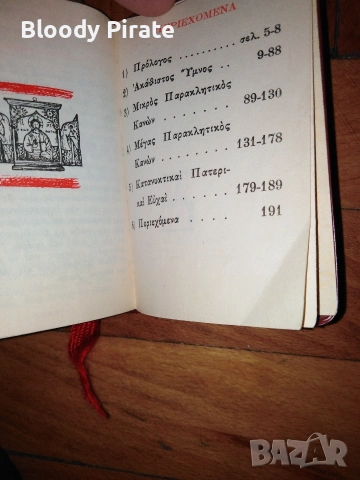 Bloody Pirate
ΡΙΕΧΟΜΕΝΑ
1) Πρόλογος . . . . . . . . . σελ. 5-8
2) Ἀκάθιστος Ὕμνος . . 9-88
3) Μικρὸς Παρακλητικὸς
Κανών . . . . . . 89-130
4) Μέγας Παρακλητικὸς
Κανών . . . . . . 131-178
5) Κατανυκτικαὶ Πατερι-
καὶ Εὐχαὶ . . . . . 179-189
6) Περιεχόμενα . . . . . 191
Bloody Pirate
BAZAR